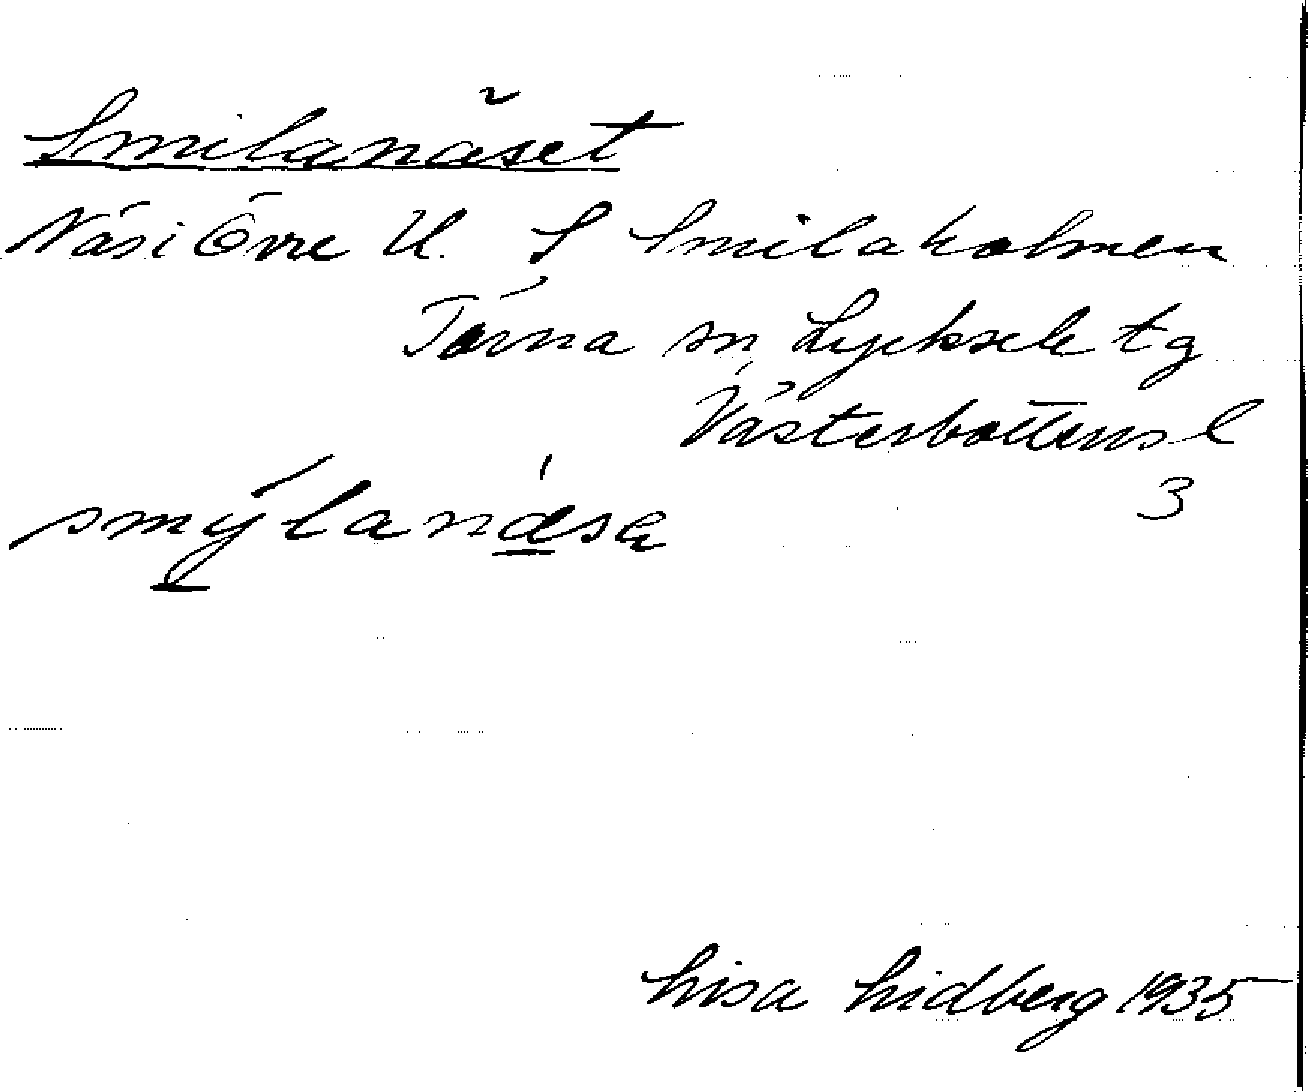 Smilanäset
Näs i Övre U. S Smilaholmen
Tärna sn Lycksele tg
Västerbottens l
3
smýlanása
Lisa Lidberg 1935